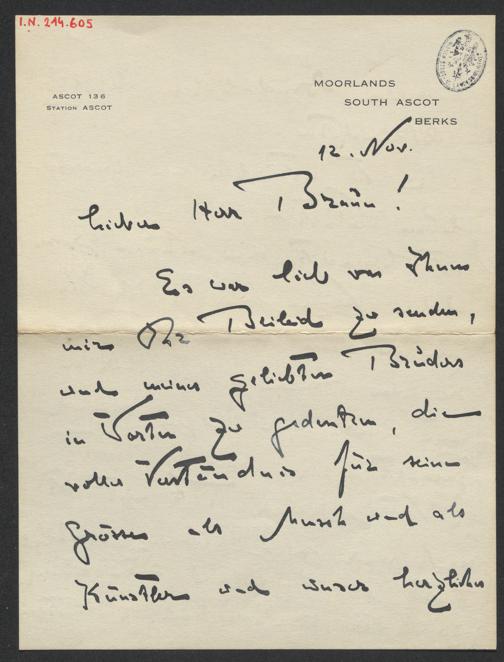 I.N. 214.605
ASCOT 136
STATION ASCOT
MOORLANDS
SOUTH ASCOT
BERKS
12. Nov.
Lieber Herr Braun!
Es war lieb von Ihnen
mir Ihr Beileid zu senden,
und meines geliebten Bruders
in Worten zu gedenken, die
voller Verständnis für seine
Grösse als Mensch und als
Künstler und unser herzliches